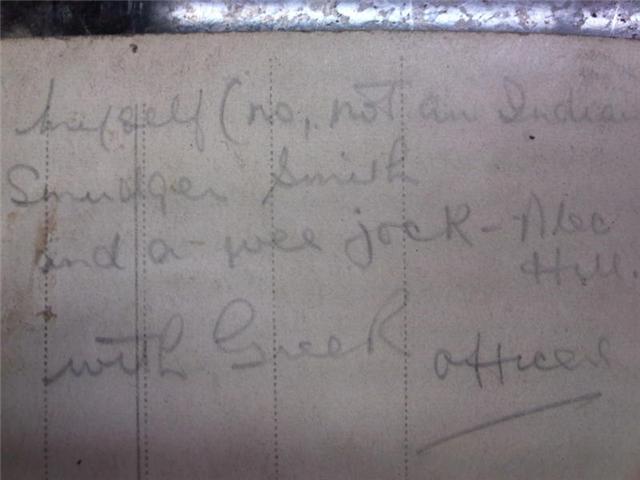 myself (no, not an Indian
Smudger Smith
and a wee jock - Alec
Hill.
with Greek officer